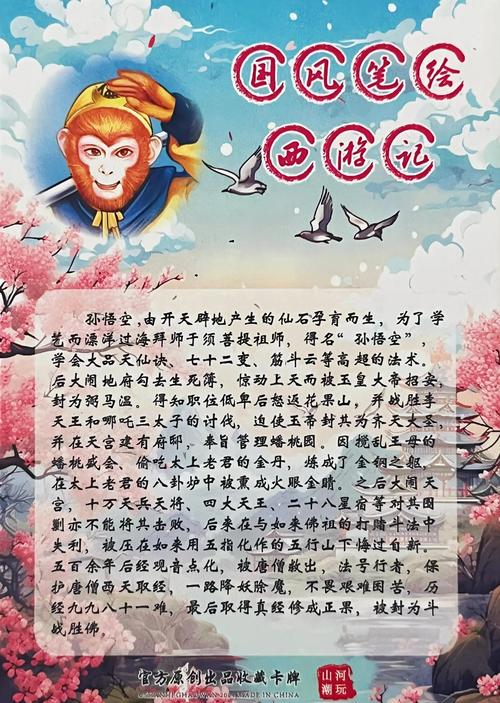 国风笔绘
西游记
孙悟空,由开天辟地产生的仙石孕育而生,为了学
艺而漂洋过海拜师于须菩提祖师,得名“孙悟空”,
学会大品天仙诀、七十二变、筋斗云等高超的法术。
后大闹地府勾去生死簿,惊动上天而被玉皇大帝招安,
封为弼马温。得知职位低卑后怒返花果山,并战胜李
天王和哪吒三太子的讨伐,迫使玉帝封其为齐天大圣,
并在天宫建有府邸,奉旨管理蟠桃园。因搅乱王母的
蟠桃盛会、偷吃太上老君的金丹,炼成了金钢之躯,
在太上老君的八卦炉中被熏成火眼金睛。之后大闹天
宫,十万天兵天将、四大天王、二十八星宿等对其围
剿亦不能将其击败,后来在与如来佛祖的打赌斗法中
失利,被压在如来用五指化作的五行山下悔过自新。
五百余年后经观音点化,被唐僧救出,法号行者,保
护唐僧西天取经,一路降妖除魔,不畏艰难困苦,历
经九九八十一难,最后取得真经修成正果,被封为斗
战胜佛。
官方原创出品收藏卡牌
MADE IN CHINA
山河
潮玩